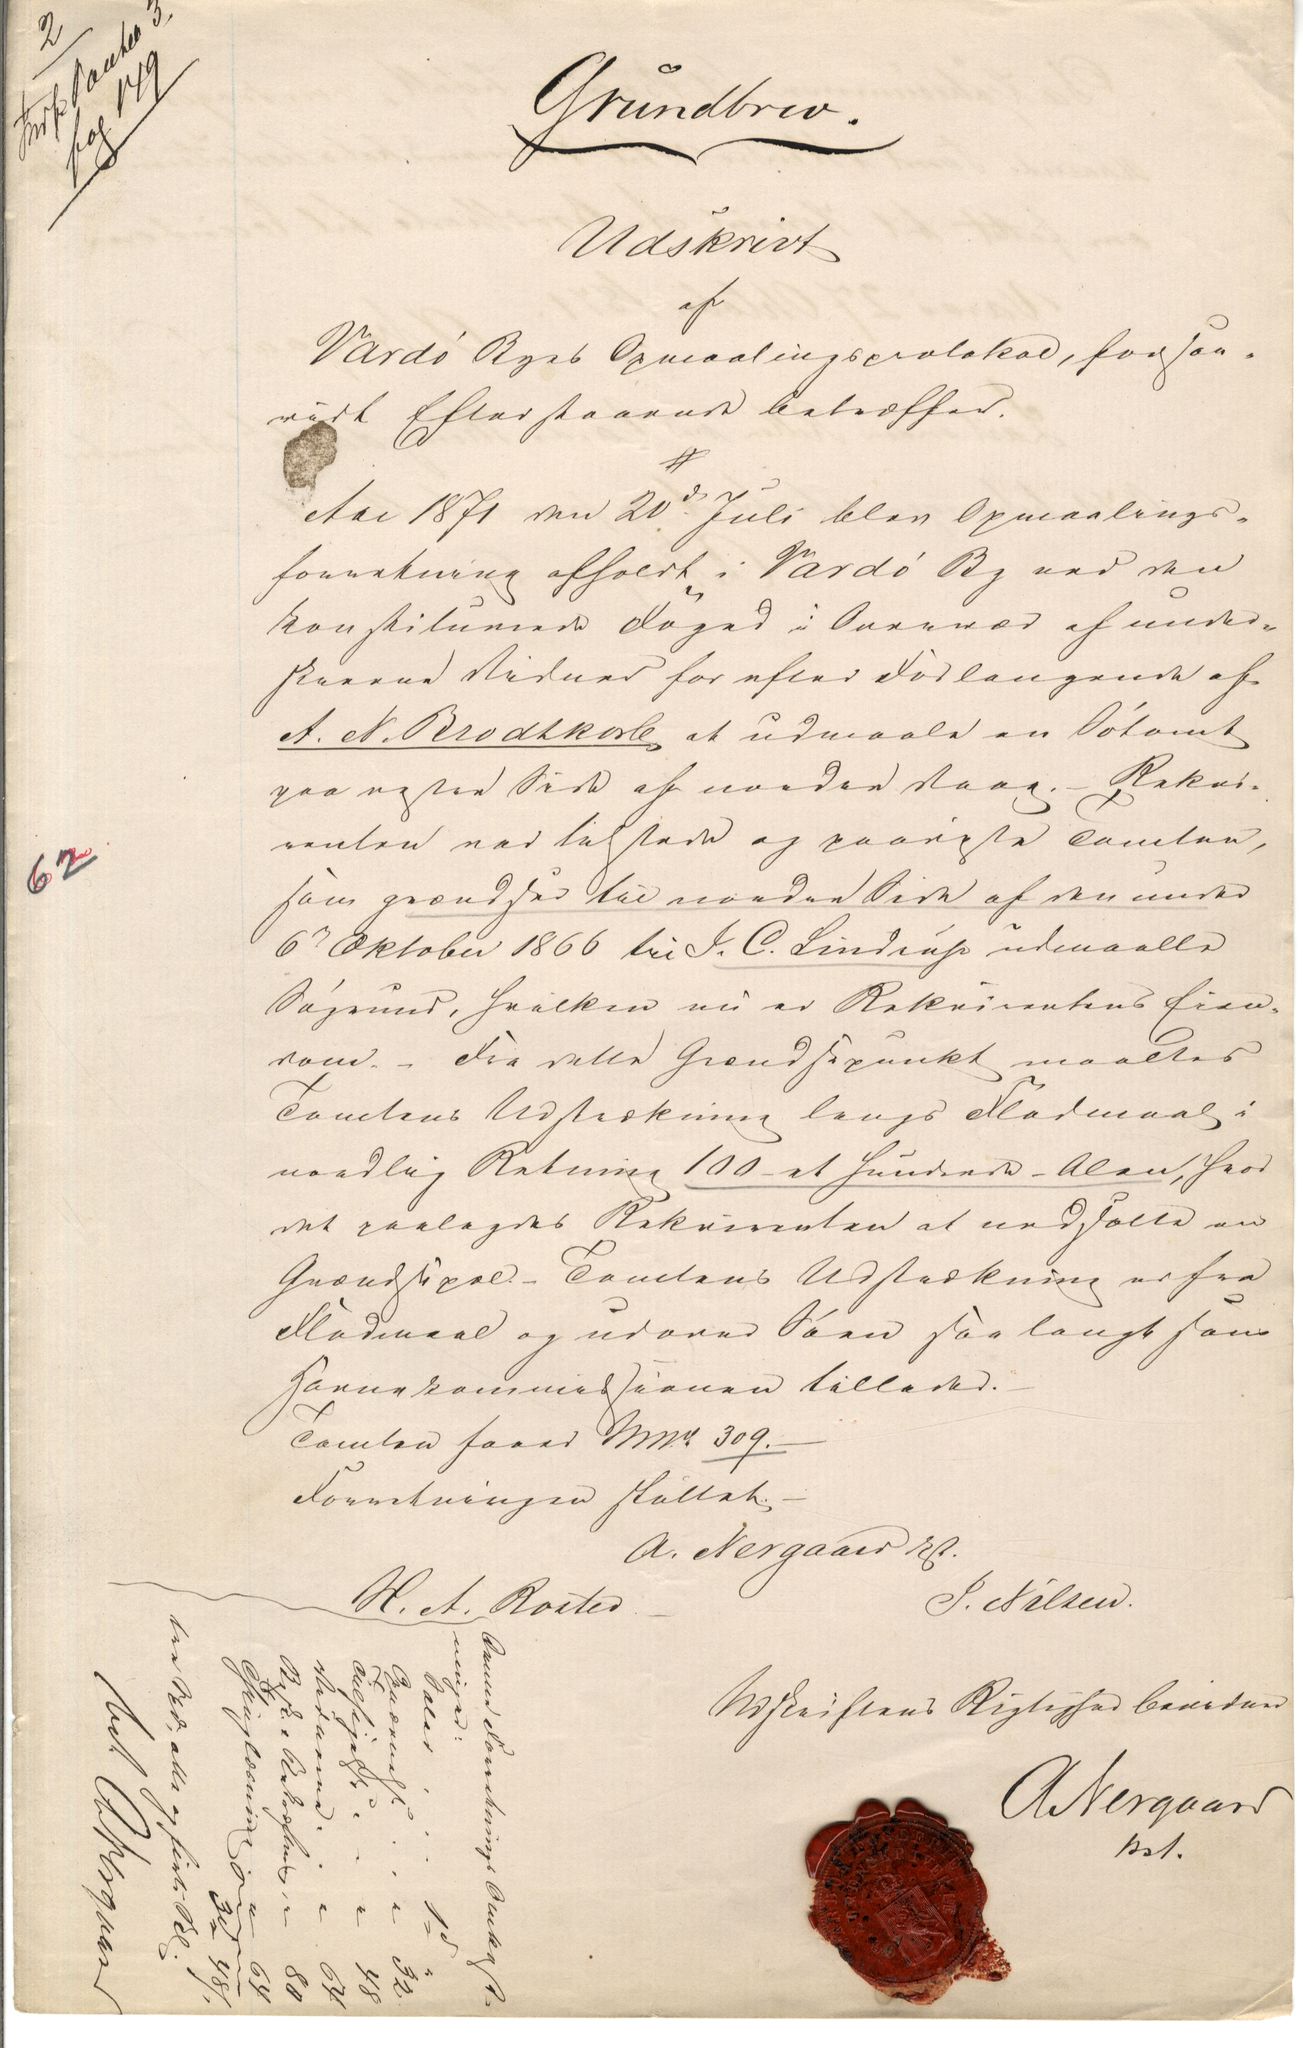 2
Indf. Pantreg. 3,
pag 149
Grundbrev.
Udskrivt
af
Vardó Byes Opmaalingsprotokol, forsaa-
vidt Efterstaaende betræffer.
Aar 1871 den 20de Juli blev Opmaalings-
forretning afholdt i Vardó By ved den
konstituerede Foged i af under-
skrevne Vidner for efter Forlangende af
A. N. Brodtkorb at udmaale en Sótomt
paa vestre Side af nordre Vaag. - Rekvi-
renten var tilstede og paaviste Tomten,
som grændser til nordre Side af den under
6te Oktober 1866 til J. C. Lindrup udmaalte
Sógrund, hvilken nu er Rekvirentens Eien-
dom. - Fra dette Grændsepunkt maaltes
Tomtens Udstrækning langs Flodmaal i
nordlig Retning 100 - et hundrede - Alen, hvor
det paalagdes Rekvirenten at nedsætte en
Grændsepæl. - Tomtens Udstrækning er fra
Flodmaal og udover Sóen saa langt som
Havnekommissionen tillader. -
Tomten faaer MNr. 309. -
Forretningen sluttet. -
A. Nergaard kst.
H. A. Rosted
J. Nilsen.
Udskriftens Rigtighed bevidner
A Nergaard
kst.
Denne Forretnings
ninger:
1 d
32
48
Vidnerne 64
80
Thinglæsning 64
3 d 48 s.
tre Spd. otte og firti Skl.
bet. A Nergaard
62